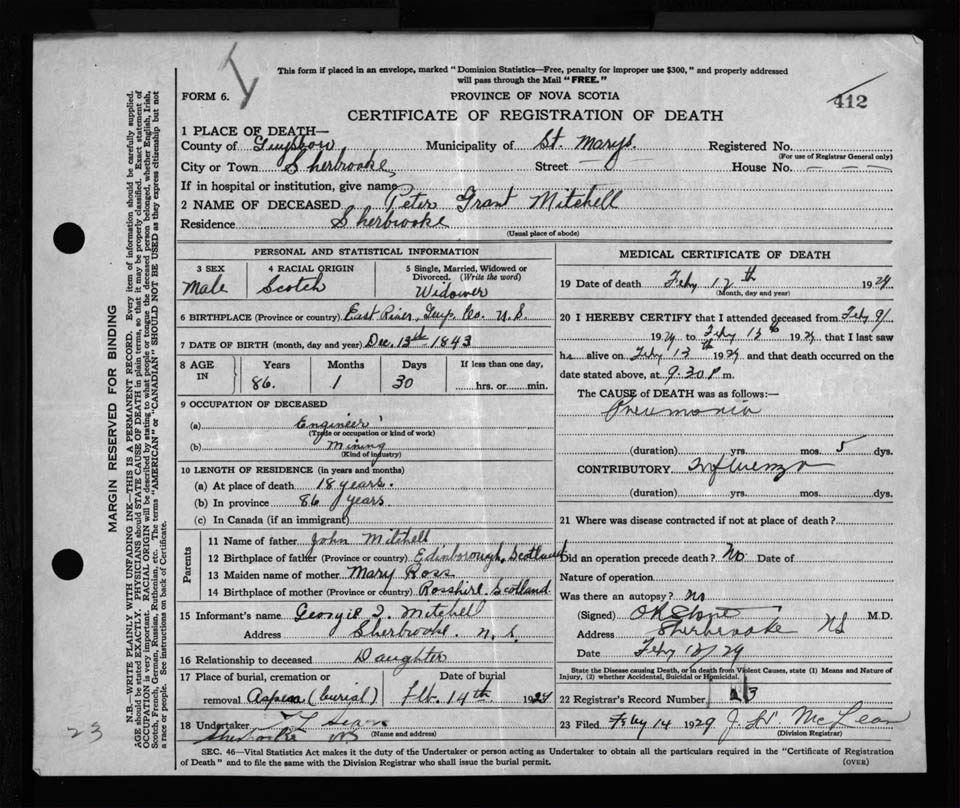 This form if placed in an envelope, marked "Dominion Statistics—Free, penalty for improper use $300," and properly addressed
will pass through the Mail "FREE."
FORM 6.
PROVINCE OF NOVA SCOTIA
412
CERTIFICATE OF REGISTRATION OF DEATH
1 PLACE OF DEATH—
County of Guysboro Municipality of St. Marys. Registered No.
(For use of Registrar General only)
City or Town Sherbrooke, Street — — House No. — — —
If in hospital or institution, give name
2 NAME OF DECEASED Peter Grant Mitchell
Residence Sherbrooke
(Usual place of abode)
PERSONAL AND STATISTICAL INFORMATION
3 SEX Male
4 RACIAL ORIGIN Scotch
5 Single, Married, Widowed or Divorced. (Write the word) Widower
6 BIRTHPLACE (Province or country) East River, Guys. Co. N. S.
7 DATE OF BIRTH (month, day and year) Dec. 13th 1843
8 AGE IN Years 86. Months 1 Days 30 If less than one day, hrs. or min.
9 OCCUPATION OF DECEASED
(a) Engineer
(Trade or occupation or kind of work)
(b) Mining
(Kind of industry)
10 LENGTH OF RESIDENCE (in years and months)
(a) At place of death 18 years.
(b) In province 86 years
(c) In Canada (if an immigrant)
Parents
11 Name of father John Mitchell
12 Birthplace of father (Province or country) Edinborough, Scotland
13 Maiden name of mother Mary Ross
14 Birthplace of mother (Province or country) Rosshire, Scotland
15 Informant's name Georgie Mitchell
Address Sherbrooke. N. S.
16 Relationship to deceased Daughter
17 Place of burial, cremation or Date of burial
removal Aspen (burial) Feb. 14th 1929
18 Undertaker
(Name and address)
Sherbrooke NS
MEDICAL CERTIFICATE OF DEATH
19 Date of death Feby 12th 1929
(Month, day and year)
20 I HEREBY CERTIFY that I attended deceased from Feby 9/
1929 to Feby 13th 1929 that I last saw
h alive on Feby 13th 1929 and that death occurred on the
date stated above, at 9.30 P. m.
The CAUSE of DEATH was as follows:—
Pneumonia
(duration) yrs. mos. 5 dys.
CONTRIBUTORY Influenza
(duration) yrs. mos. dys.
21 Where was disease contracted if not at place of death?
Did an operation precede death? No Date of
Nature of operation
Was there an autopsy? No
(Signed) M.D.
Address Sherbrooke NS
Date Feby 13/29
State the Disease causing Death, or in death from Violent Causes, state (1) Means and Nature of
Injury, (2) whether Accidental, Suicidal or Homicidal.
22 Registrar's Record Number 23
23 Filed Feby 14 1929 J. H. McLean
(Division Registrar)
SEC. 46—Vital Statistics Act makes it the duty of the Undertaker or person acting as Undertaker to obtain all the particulars required in the "Certificate of Registration
of Death" and to file the same with the Division Registrar who shall issue the burial permit. (OVER)
MARGIN RESERVED FOR BINDING
N.B.—WRITE PLAINLY WITH UNFADING INK—THIS IS A PERMANENT RECORD. Every item of information should be carefully supplied.
AGE should be stated EXACTLY. PHYSICIANS should STATE CAUSE OF DEATH in plain terms, so that it may be properly classified. Exact statement of
OCCUPATION is very important. RACIAL ORIGIN will be described by stating to what people or tongue the deceased person belonged, whether English, Irish,
Scotch, French, German, Russian, Ruthenian, etc. The terms "AMERICAN" or "CANADIAN" SHOULD NOT BE USED as they express citizenship but not
a race or people. See instructions on back of Certificate.
23